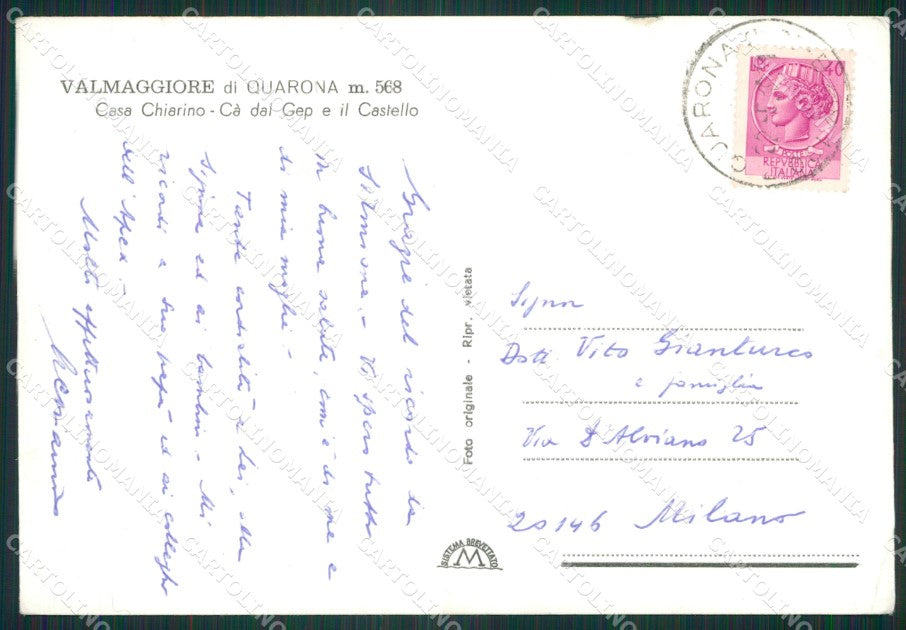 VALMAGGIORE di QUARONA m. 568
Casa Chiarino - Cà dal Gep e il Castello
Grazie del ricordo da
Sirmione. - Vi spero tutti
in buona salute, com'è di me e
di mia moglie. -
Tante cordialità a Lei, alla
Signora ed ai bambini. - Mi
ricordi a Suo papà ed ai colleghi
dell'
Molto affettuosamente
Foto originale - Ripr. vietata
SISTEMA BREVETTATO
M
QUARONA
LIRE 40
POSTE
REPUBBLICA
ITALIANA
Signor
Dott. Vito Gianturco
e famiglia
Via D'Alviano 25
20146 Milano
CARTOLINOMANIA